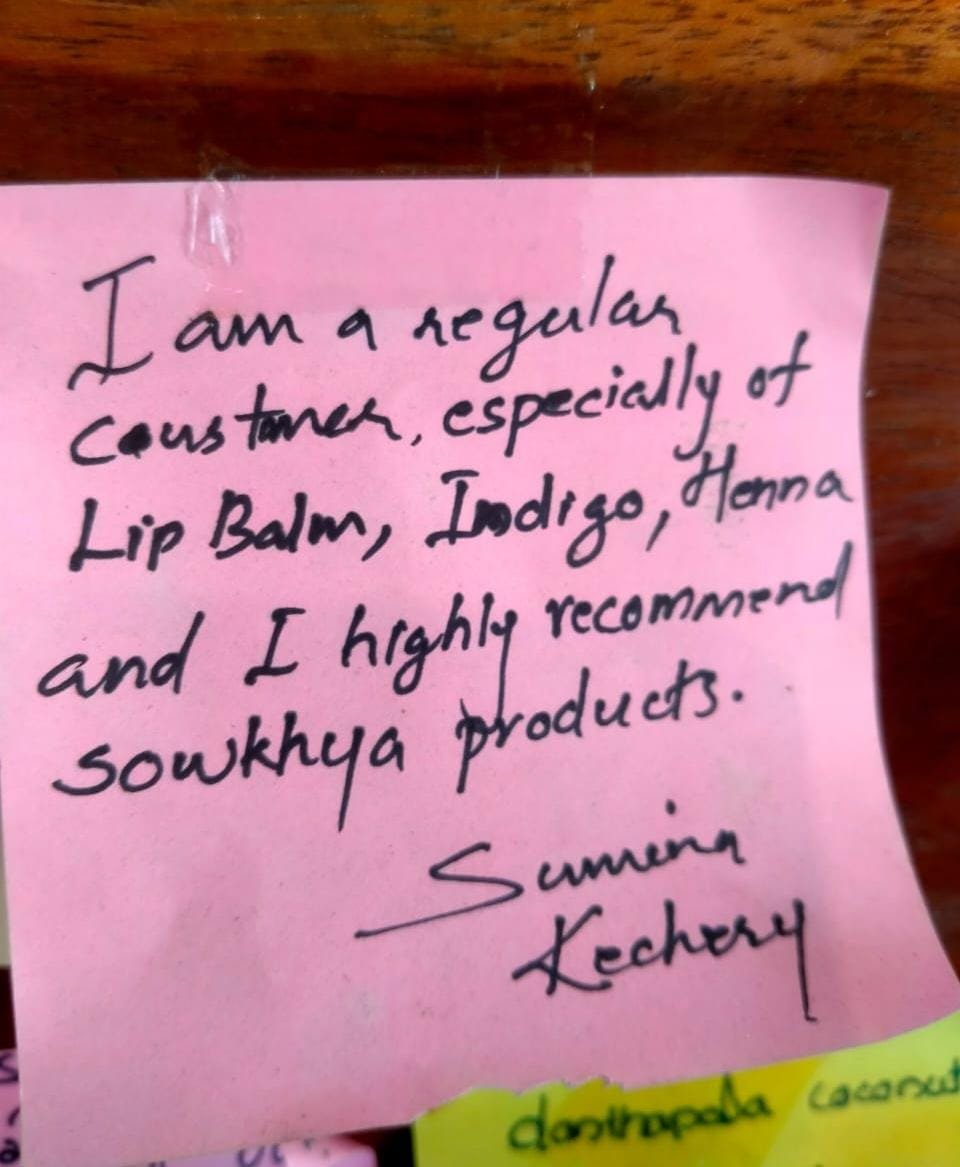 I am a regular
coustmer, especially of
Lip Balm, Indigo, Henna
and I highly recommend
sowkhya products.
Sumina
Kechery
coconut